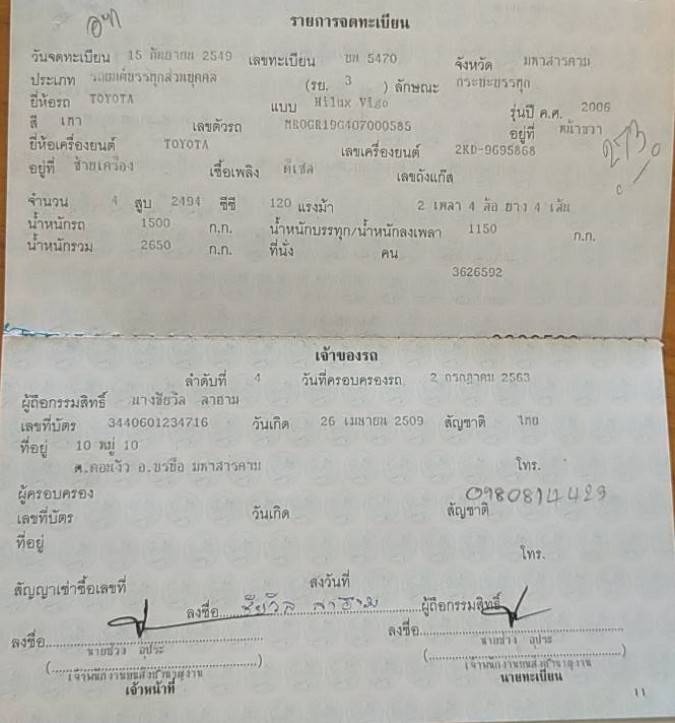 รายการจดทะเบียน
วันจดทะเบียน 15 กันยายน 2549 เลขทะเบียน บท 5470 จังหวัด มหาสารคาม
ประเภท รถยนต์บรรทุกส่วนบุคคล (รย. 3 ) ลักษณะ กระบะบรรทุก
ยี่ห้อรถ TOYOTA แบบ Hilux Vigo รุ่นปี ค.ศ. 2006
สี เทา เลขตัวรถ MR0GR19G407000585 อยู่ที่ หน้าขวา
ยี่ห้อเครื่องยนต์ TOYOTA เลขเครื่องยนต์ 2KD-9695868
อยู่ที่ ซ้ายเครื่อง เชื้อเพลิง ดีเซล เลขถังแก๊ส
จำนวน 4 สูบ 2494 ซีซี 120 แรงม้า 2 เพลา 4 ล้อ ยาง 4 เส้น
น้ำหนักรถ 1500 ก.ก. น้ำหนักบรรทุก/น้ำหนักลงเพลา 1150 ก.ก.
น้ำหนักรวม 2650 ก.ก. ที่นั่ง คน
3626592
เจ้าของรถ
ลำดับที่ 4 วันที่ครอบครองรถ 2 กรกฎาคม 2563
ผู้ถือกรรมสิทธิ์ นางชัยวิล ลาอาม
เลขที่บัตร 3440601234716 วันเกิด 26 เมษายน 2509 สัญชาติ ไทย
ที่อยู่ 10 หมู่ 10
ต.ดอนงัว อ.บรบือ มหาสารคาม โทร.
ผู้ครอบครอง 0980814429
เลขที่บัตร วันเกิด สัญชาติ
ที่อยู่ โทร.
สัญญาเช่าซื้อเลขที่ ลงวันที่
ลงชื่อ ชัยวิล ลาอาม ผู้ถือกรรมสิทธิ์
ลงชื่อ ลงชื่อ
นายช่วง อุประ นายช่วง อุประ
(เจ้าพนักงานขนส่งชำนาญงาน) (เจ้าพนักงานขนส่งชำนาญงาน)
เจ้าหน้าที่ นายทะเบียน
11